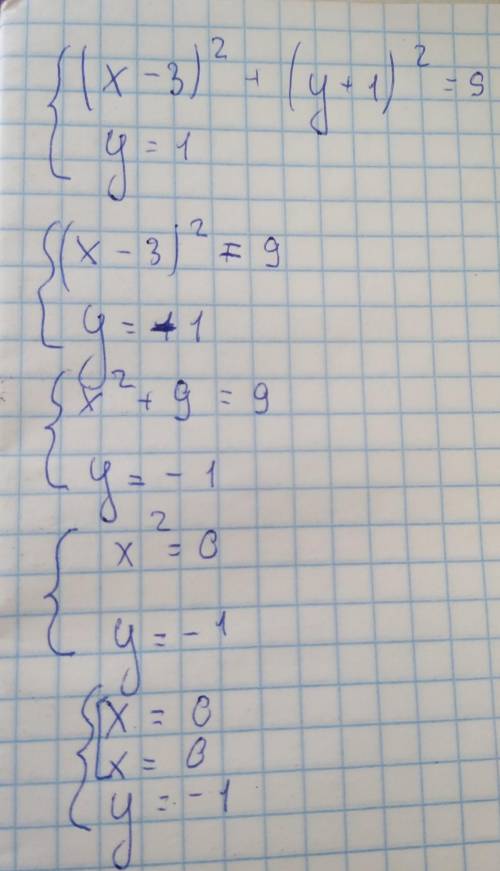 (x - 3)² + (y + 1)² = 9
y = 1
(x - 3)² = 9
y = -1
x² + 9 = 9
y = - 1
x² = 0
y = - 1
x = 0
x = 0
y = - 1